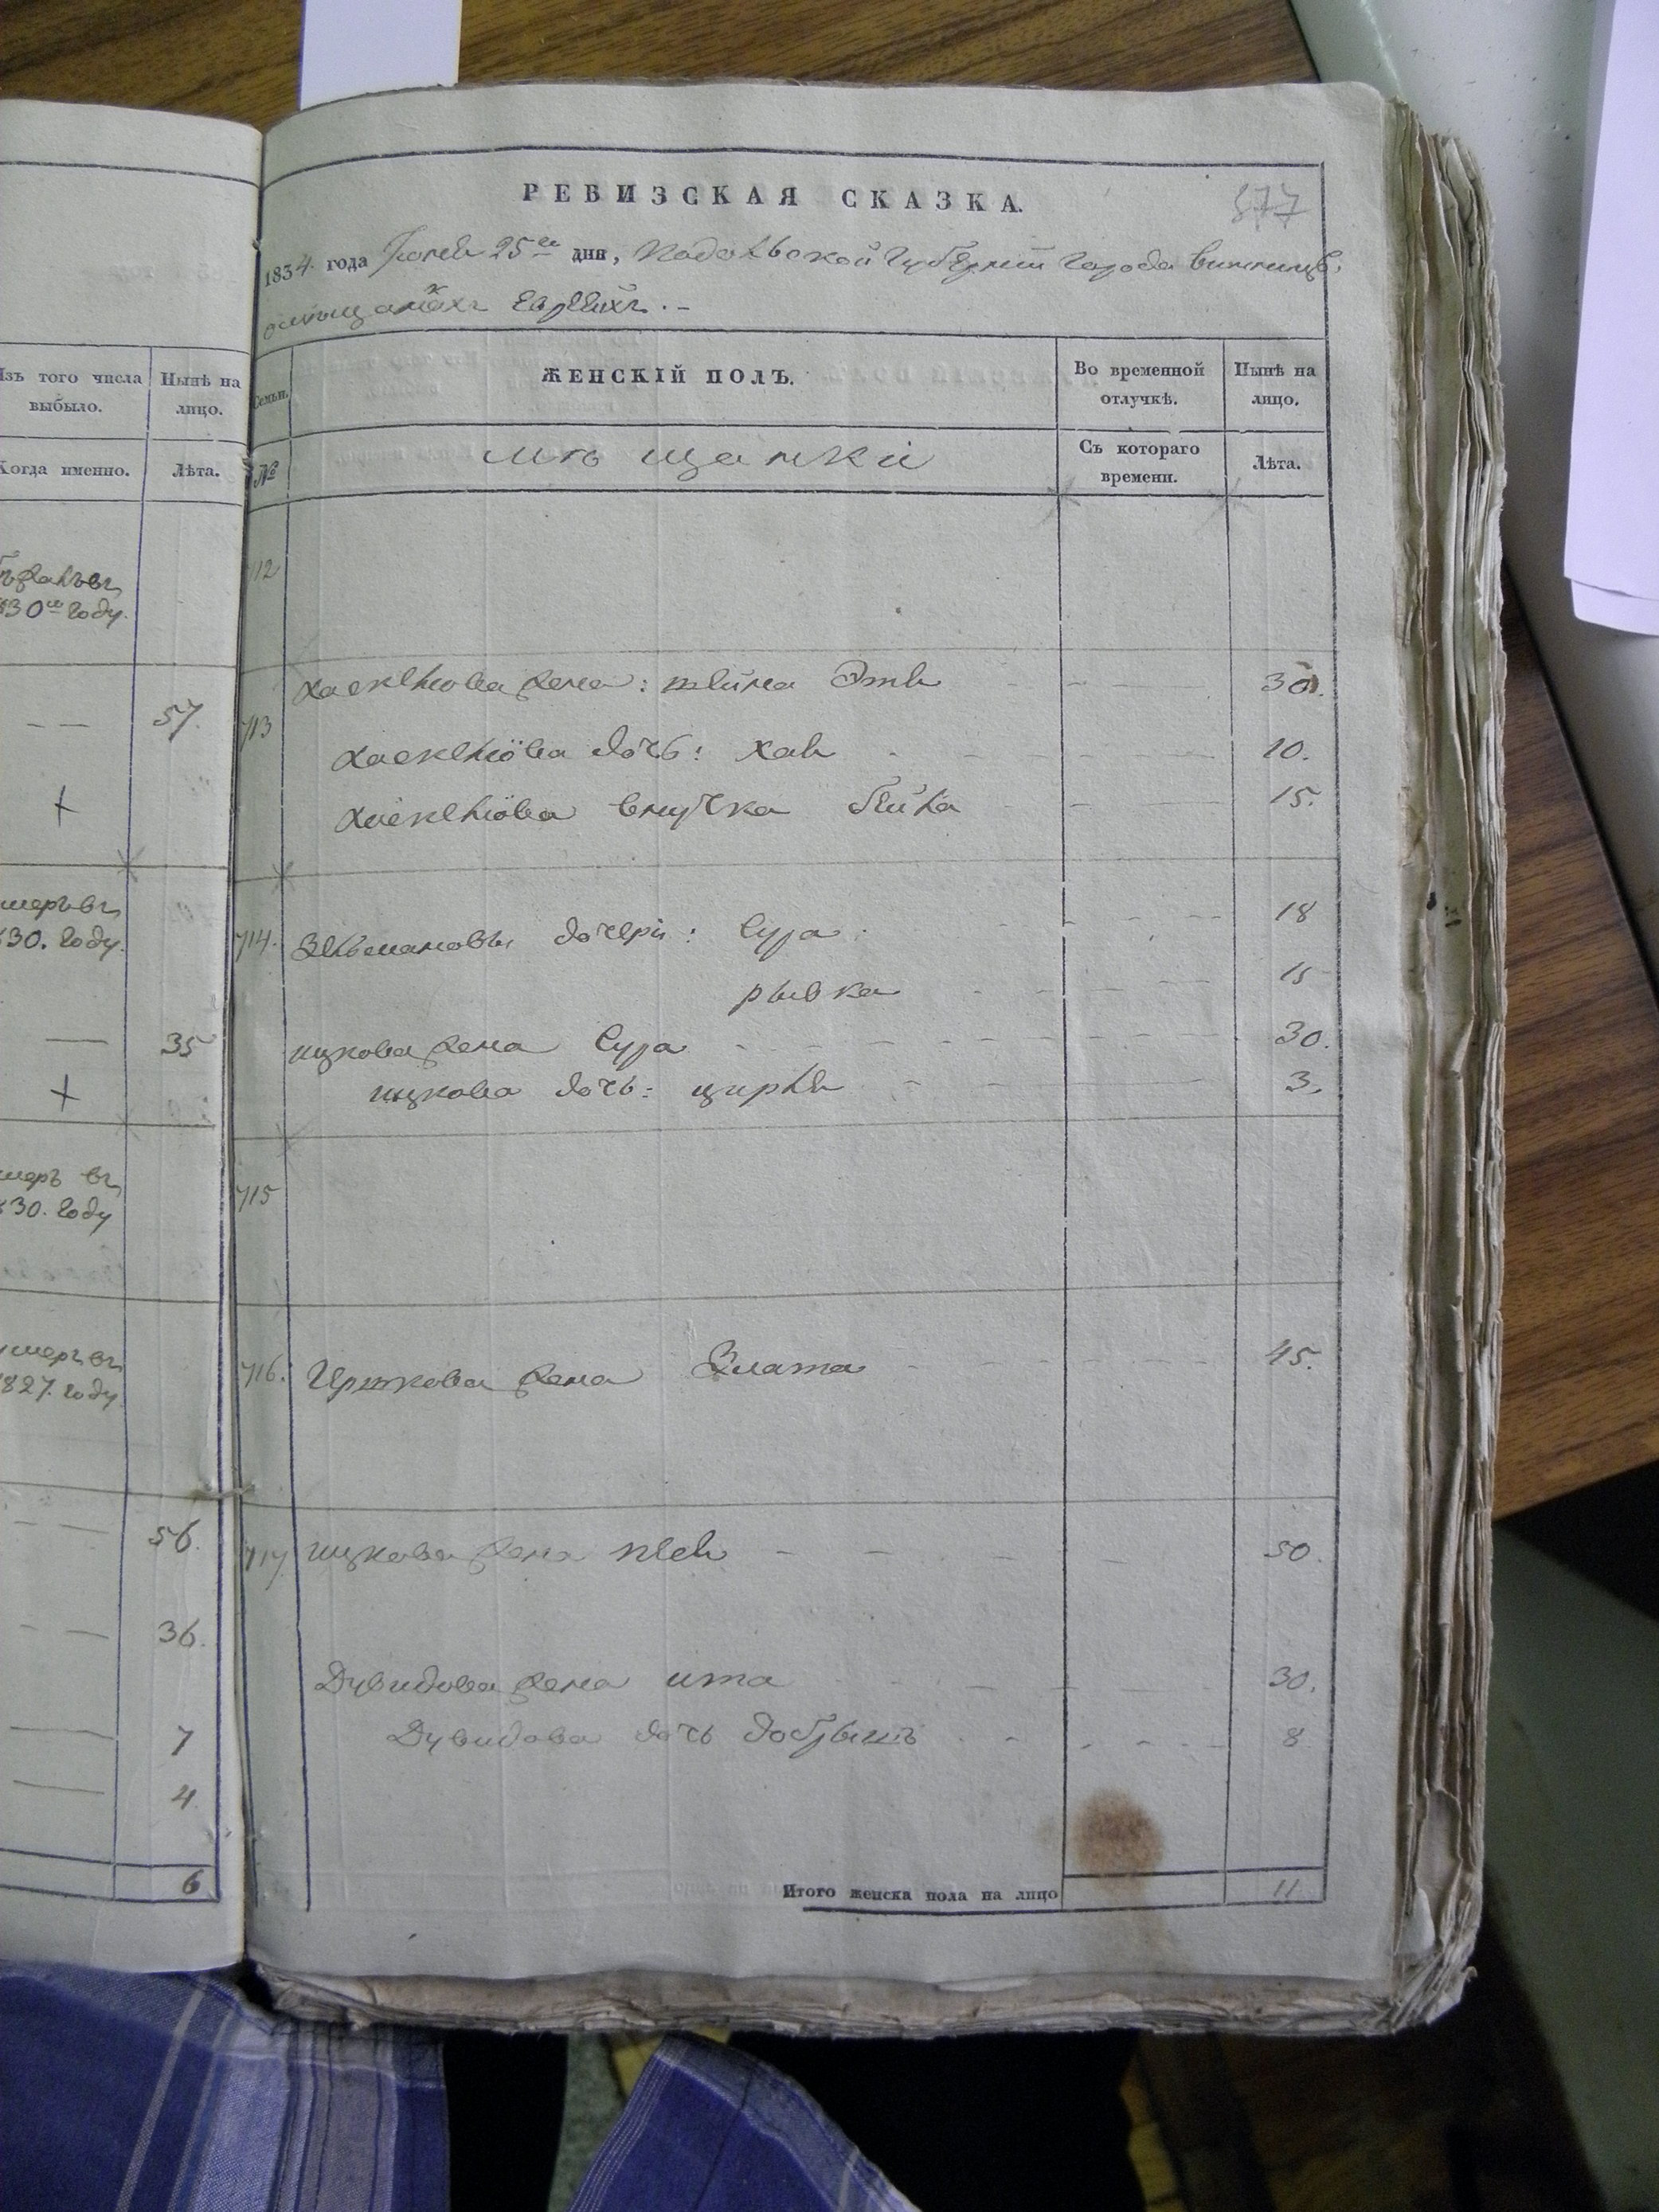 Изъ того числа выбыло.
Нынѣ на лицо.
Когда именно.
Лѣта.
30го году.
— — 57.
+
умеръ въ
30. году.
— 35
+
умеръ въ
30. году
умеръ въ
1827. году
— — 56.
— — 36.
— 7
— 4
6
РЕВИЗСКАЯ СКАЗКА.
877
1834 года 25го дня, Подольской Губернии Города Винницы
о мѣщанахъ Евреяхъ.
Семьи.
ЖЕНСКІЙ ПОЛЪ.
Во временной отлучкѣ.
Нынѣ на лицо.
№
мѣщанки
Съ котораго времени.
Лѣта.
712
Хаскелiова жена: Этя 30.
713
Хаскелiова дочь: Хая 10.
Хаскелiова внучка бейла 15.
714. Зельмановы дочери: Сура 18
рывка 15
ицкова жена Сура 30.
ицкова дочь: цирля 3.
715
716. Гершкова жена Злата 45.
717 ицкова жена 50.
Дувидова жена ита 30.
Дувидова дочь добрышъ 8
Итого женска пола на лицо 11